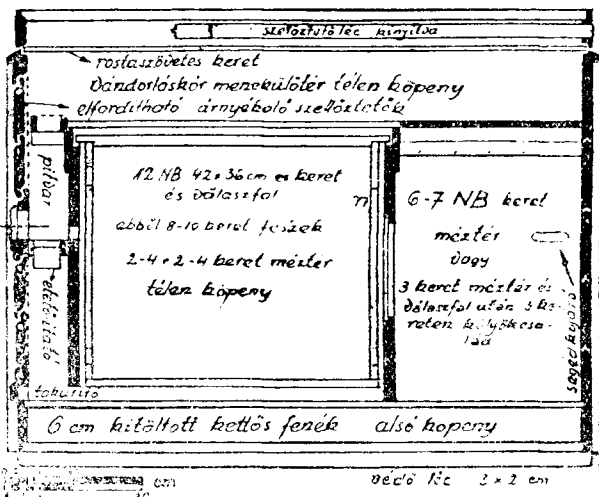 szellőztető léc kinyitva
rostaszövetes keret
Vándorláskor menekülőtér télen köpeny
elfordítható árnyékoló szellőztetők
pitvar
életőitató
12 NB 42×36 cm es keret
és válaszfal
ebből 8-10 keret fészek
2-4 + 2-4 keret méztér
télen köpeny
n
6-7 NB keret
méztér
vagy
3 keret méztér és
válaszfal után 3 ke-
reten kölyökcsa-
lád
segédkijáró
6 cm kitöltött kettős fenék alsó köpeny
cm
védő léc 3 × 2 cm